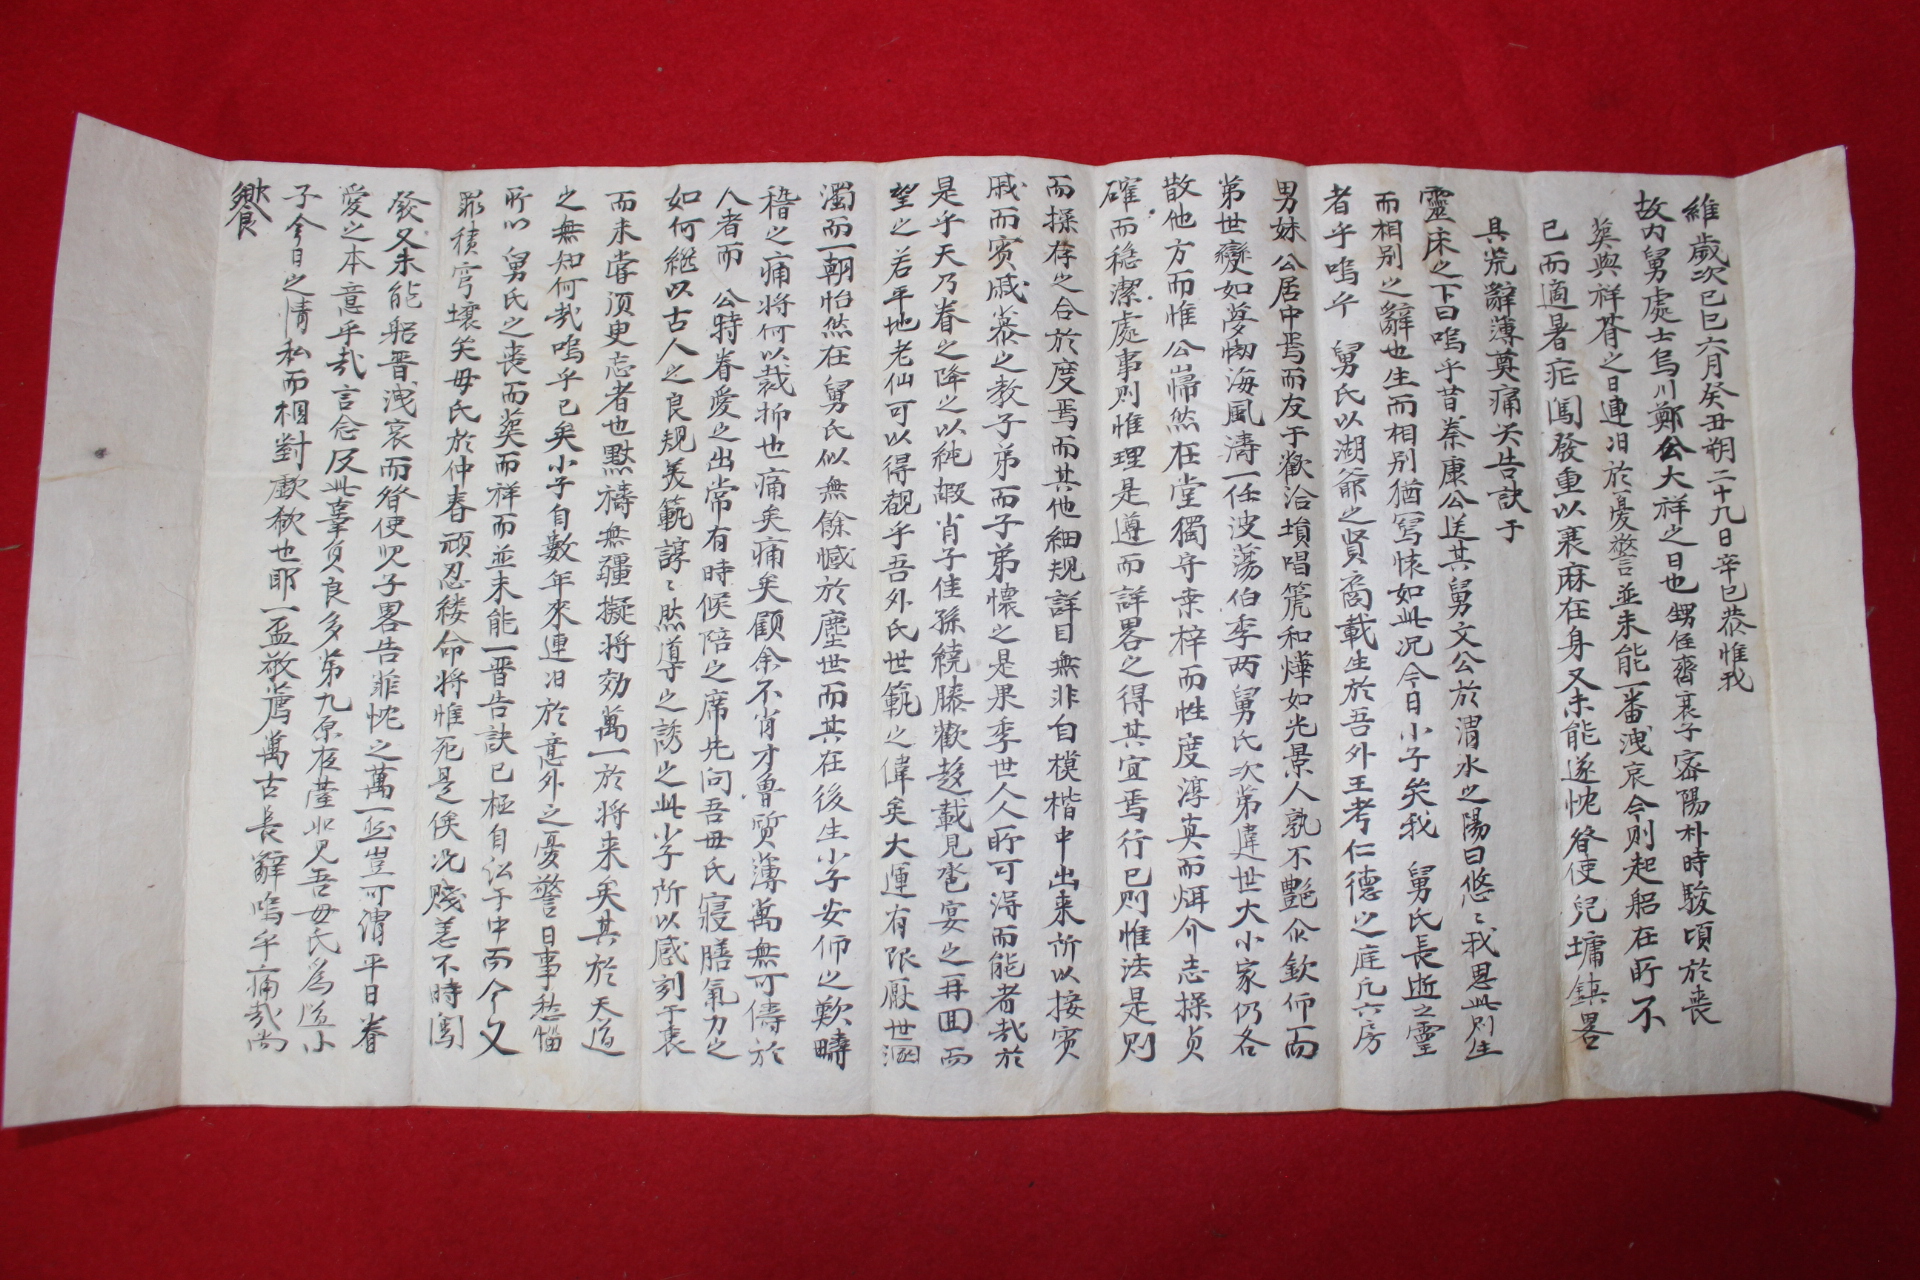 維歲次己巳六月癸丑朔二十九日辛巳恭惟我
故內舅處士烏川鄭公大祥之日也甥侄齊衰子密陽朴時駿頃於喪
葬與祥朞之日連汨於憂警並未能一番洩哀今則起躳在所不
已而適暑症闖發重以衰麻在身又未能遂忱替使兒墉鎮畧
具荒辭薄奠痛哭告訣于
靈床之下曰嗚乎昔秦康公送其舅文公於渭水之陽曰悠〻我思此則生
而相別之辭也生而相別猶寫懷如此况今日小子矣我 舅氏長逝之靈
者乎嗚乎 舅氏以湖爺之賢裔載生於吾外王考仁德之庭凡六房
男妹公居中焉而友于歡洽塤唱篪和燁如光景人孰不艶企欽仰而
第世變如夢忉海風濤一任波蕩伯季两舅氏次第違世大小家仍各
散他方而惟公巋然在堂獨守桒梓而性度淳真而烱介志操貞
確而穩潔處事則惟理是遵而詳畧之得其宜焉行己則惟法是則
而操存之合於度焉而其他細规詳目無非自模楷中出来所以接賓
戚而賓戚慕之教子弟而子弟懷之是果季世人人所可淂而能者哉於
是乎天乃眷之降之以純嘏肖子佳孫繞膝歡趍載見巹宴之再回而
望之若平地老仙可以得覩乎吾外氏世範之偉矣大運有限厭世溷
濁而一朝怡然在舅氏似無餘憾於塵世而其在後生小子安仰之歎疇
稽之痛将何以裁抑也痛矣痛矣顧余不肖才魯質薄萬無可儔於
人者而 公特眷愛之出常有時候陪之席先问吾母氏寢膳氣力之
如何継以古人之良規美範諄〻然導之誘之此小子所以感刻于衷
而未嘗须臾忘者也黙禱無疆擬将効萬一於将来矣其於天道
之無知何哉嗚乎已矣小子自數年來連汨於意外之憂警日事愁惱
所以 舅氏之喪而葬而祥而並未能一晋告訣已極自訟于中而今又
罪積穹壤矣母氏於仲春頑忍縷命将惟死是俟况賤恙不時闖
發又未能躳晋洩哀而替使兒子畧告菲忱之萬一然豈可謂平日眷
愛之本意乎哉言念及此辜負良多第九原夜臺如見吾母氏為噵小
子今日之情私而相對歔欷也耶一盃敬薦萬古長辭嗚乎痛哉尚
饗